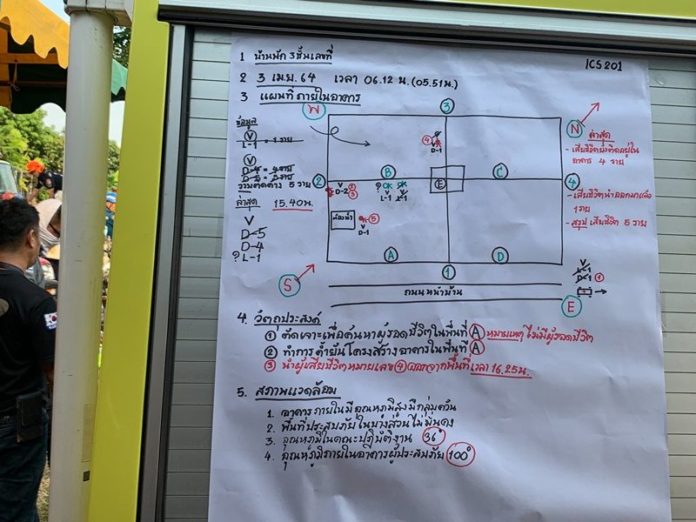 ICS 201
1 บ้านพัก 3 ชั้นเลขที่
2 3 เม.ย. 64 เวลา 06.12 น. (05.51น.)
3 แผนที่ภายในอาคาร
W
3
N
ข้อมูล
V
L-1 = 1 ราย
V
รวมตกค้าง 5 ราย
ล่าสุด 15.40น.
V
D-5
D-4
?L-1
ล่าสุด
- เสียชีวิตยังติดอยู่ใน
อาคาร 4 ราย
- เสียชีวิตนำออกมาแล้ว
1 ราย
- สรุป เสียชีวิต 5 ราย
4
D-1
2
B
E
C
4
V
D-2
2
3
?
V
L-1
L-1
ห้องน้ำ
5
V
D-1
A
D
1
S
E
V
L-1
D-1
4
ถนนหน้าบ้าน
4. วัตถุประสงค์
1 ตัดเจาะเพื่อค้นหาผู้รอดชีวิตในพื้นที่ A หมายเหตุ ไม่มีผู้รอดชีวิต
2 ทำการค้ำยันโครงสร้างอาคารในพื้นที่ A
3 นำผู้เสียชีวิตหมายเลข 4 ออกจากพื้นที่ เวลา 16.25น.
5. สภาพแวดล้อม
1. อาคารภายในมีอุณหภูมิสูงมีกลุ่มควัน
2. พื้นที่ประสบภัยในบางส่วนไม่มั่นคง
3. อุณหภูมิในขณะปฏิบัติงาน 36°
4. อุณหภูมิภายในอาคารผู้ประสบภัย 100°